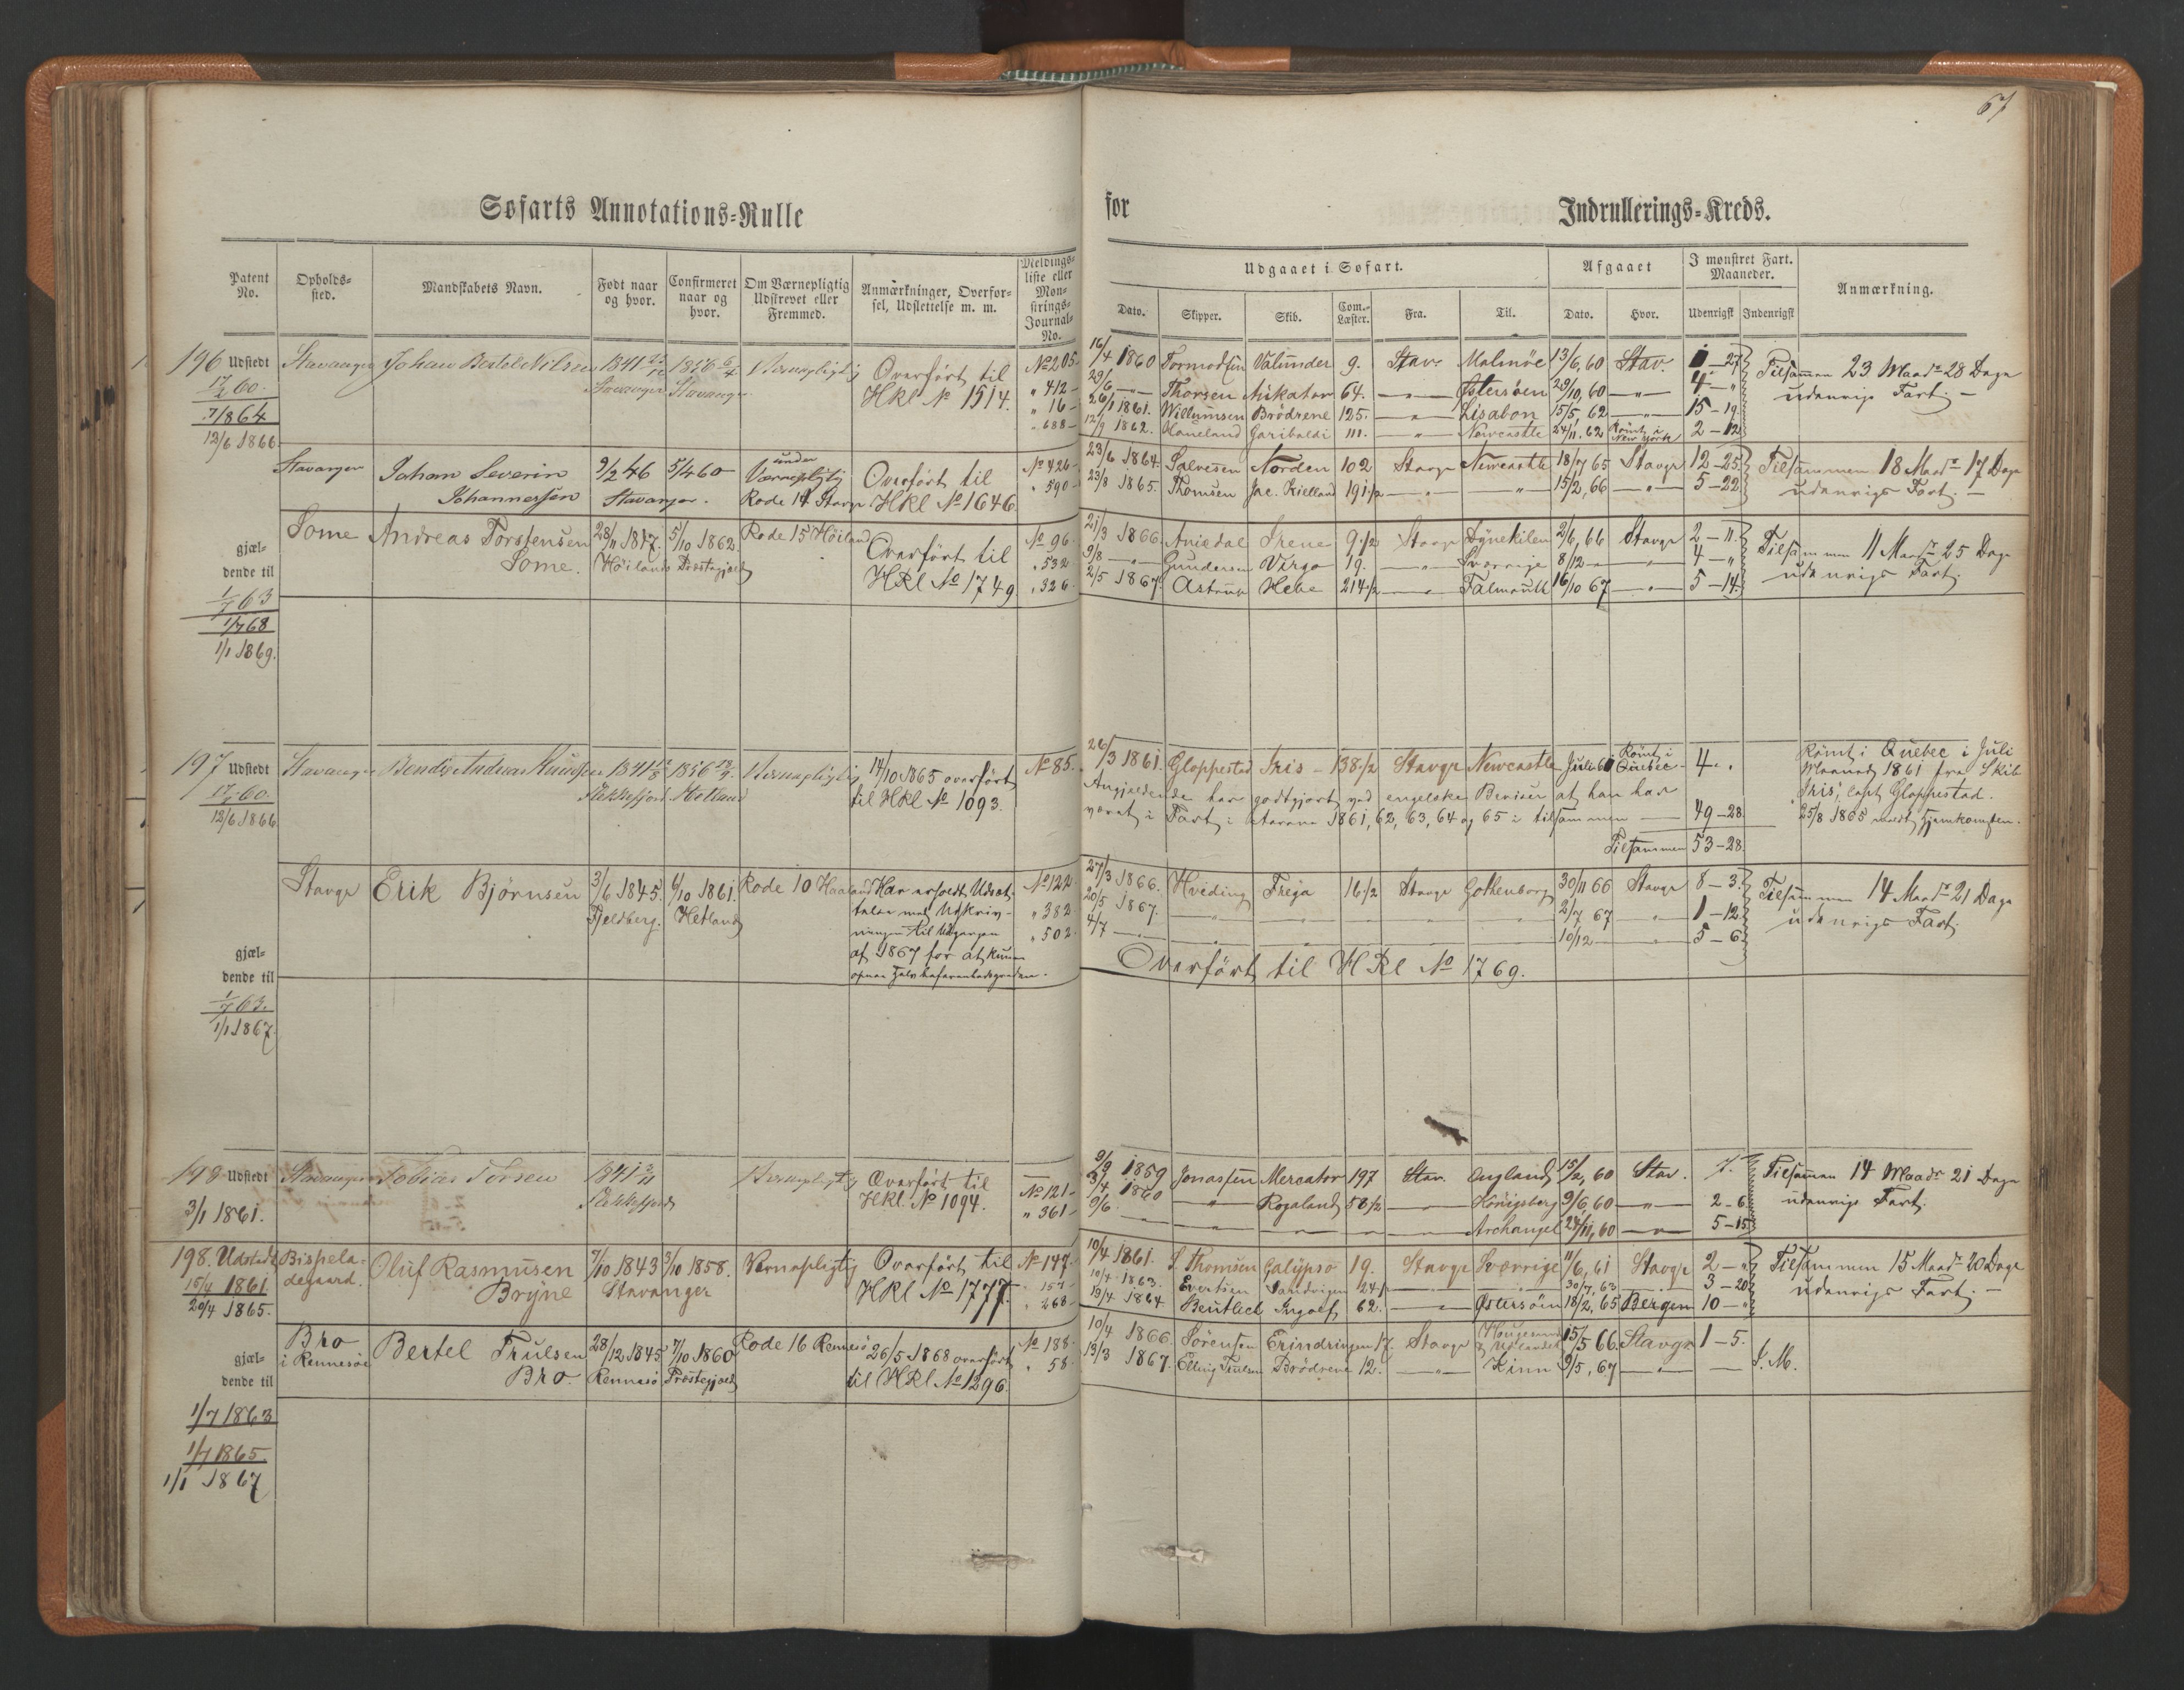 67
Søfarts Annotations=Rulle
for
Indrullerings=Kreds.
Patent No.
Opholds=sted.
Mandskabets Navn.
Født naar og hvor.
Confirmeret naar og hvor.
Om Værnepligtig Udskrevet eller Fremmed.
Anmærkninger, Overfør=sel, Udslettelse m. m.
Meldings=liste eller Møn=strings=Journal=No.
Udgaaet i Søfart.
Afgaaet
I mønstret Fart. Maaneder.
Anmærkning.
Dato.
Skipper.
Skib.
Com.=Læster.
Fra.
Til.
Dato.
Hvor.
Udenrigsk
Indenrigsk
196 Udstedt Stavanger Johan Bertel Nilsen 1841 1856 Værnepligtig Overført til No 205
Stavanger Stavanger HKl No 1514. " 412
" 16
" 688
1864
12/6 1866
16/4 1860 Tormodsen Valunder 9. Stav. Malmøe 13/6, 60 Stav. 1-27
29/6 Thorsen 64. Østersøen 29/10, 60 4 - "
26/1 1861. Willumsen Brödrene 125. Lisabon 15/5, 62 15-19
12/9 1862. Haueland Garibaldi 111. Newcastle 24/11, 62 Römt i New York 2-12
Tilsamman 23 Maadr 28 Dage
udenrigs Fart. -
Stavanger Johan Severin 9/2 46 5/4 60 under Værnepligtig Overført til No 426
Johannessen Stavanger. Rode 14 Stavgr HKl No 1646. " 590
23/6 1864. Salvesen Norden 102 Stavgr Newcastle 18/7 65 Stavgr 12-25
23/8 1865. Thomsen Jac. Kielland 191 1/2 15/2, 66 5-22
Tilsammen 18 Maadr 17 Dage
udenrigs Fart. -
gjæl=
dende til
1/7 63
1/7 68
1/1 1869.
Some Andreas Torstensen 28/11 1847. 5/10 1862. Rode 15 Høiland Overført til No 96
Some. Høilands Præstegjæld HKl No 1749 " 532
" 326
21/3 1866. Irene 9 1/2 Stavgr Dynekilen 2/6, 66 Stavgr 2-11
9/8 Gundersen Virgo 19. Sverrige 8/12 4 - "
2/5 1867. Astrup Hebe 214 1/2 Falmouth 16/10 67 5-14
Tilsammen 11 Maadr 25 Dage
udenrigs Fart.
197 Udstedt Stavanger Bendix Andreas 1841 1856 Værnepligtig 14/10 1865 overført No 85.
Flekkefjord Hetland til HKl No 1093.
12/6 1866
26/3 1861. Gloppestad Iris - 138 1/2 Stavgr Newcastle Juli 61 Römt i Quebec 4 " .
Angjældende har godtgjort ved engelske Beviser at han har
været i Fart i Aarene 1861, 62, 63, 64 og 65 i tilsammen 49-28.
Tilsammen 53-28.
Römt i Quebec i Juli
Maaned 1861 fra Skib
"Iris", Capt Gloppestad.
25/8 1865 meldt Hjemkomsten.
Stavgr Erik Bjørnsen 3/6 1845. 6/10 1861. Rode 10 Haaland Har erholdt Udsæt- No 122
Fjeldberg. Hetland telse med Udskriv- " 382
ningen til Udgangen " 502
af 1867 for at kunne
27/3 1866. Hviding Freja 16 1/2 Stavgr Gothenborg 30/11 66 Stavgr 8-3.
20/5 1867. 2/7 67 1-12
4/7 10/12 5-6
Tilsammen 14 Maadr 21 Dage
udenrigs Fart.
Overført til HKl No 1769.
gjæl=
dende til
1/7 63.
1/1 1867.
198 Udstedt Stavanger Tobias 1841 Værnepligtig Overført til
3/1 1861. Flekkefjord HKl. No 1094. No 121
" 361
9/9 1859 Jonassen Mercator 197 Stav. England 15/2, 60 Stav. 7. "
3/4 1860 Rogaland 58 1/2 Königsberg 9/6, 60 2-6.
9/6 Archangel 24/11, 60 5-15
Tilsamman 14 Maadr 21 Dage
udenrigs Fart.
198. Udstedt Bispela= Oluf Rasmusen 7/10 1843 3/10 1858. Værnepligtig Overført til No 147.
15/4 1861. degaard. Bryne Stavanger HKl No 1777. " 157
20/4 1865. " 268
10/4 1861. S. Thomsen Calypso 19. Stavgr Sverrige 11/6, 61 Stavgr 2 - "
10/4 1863. Evertsen 30/7, 63 3-20
19/4 1864 Bentlich Ingolf 62. Østersøen 18/2, 65 Bergen 10 - "
Tilsammen 15 Maadr 20 Dage
udenrigs Fart. -
gjæl=
dende til
1/7 1863
1/7 1865.
1/1 1867
Bro Bertel Trulsen 28/12 1845 7/10 1860 Rode 16 Rennesø 26/5 1868 overført No 188
i Rennesøe Bro. Rennesø Præstegjæld til HKl No 1296. " 58
10/4 1866. Sörensen Erindringen 17. Stavgr 15/5 66. Stavgr 1-5.
13/3 1867. Elling Trulsen Brödrene 12. Kinn 9/5, 67 S. M.